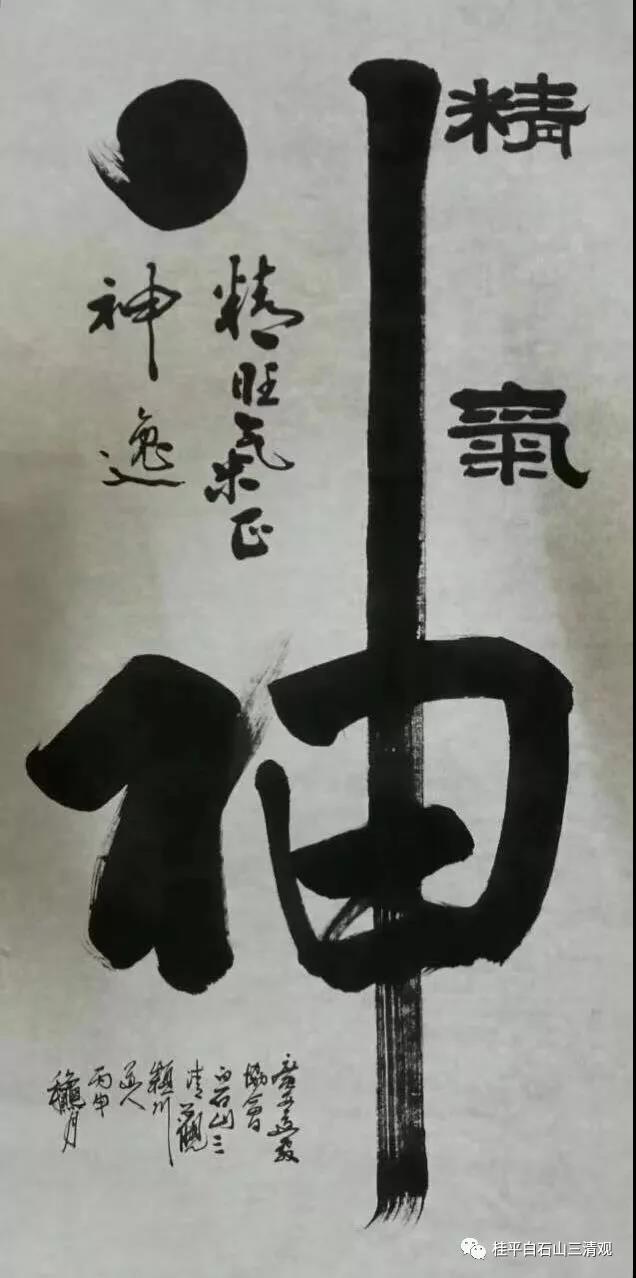 精
氣
神
精旺氣正
神逸
广西道教
協會
白石山三
清觀
穎川
道人
丙申
穐月
桂平白石山三清观